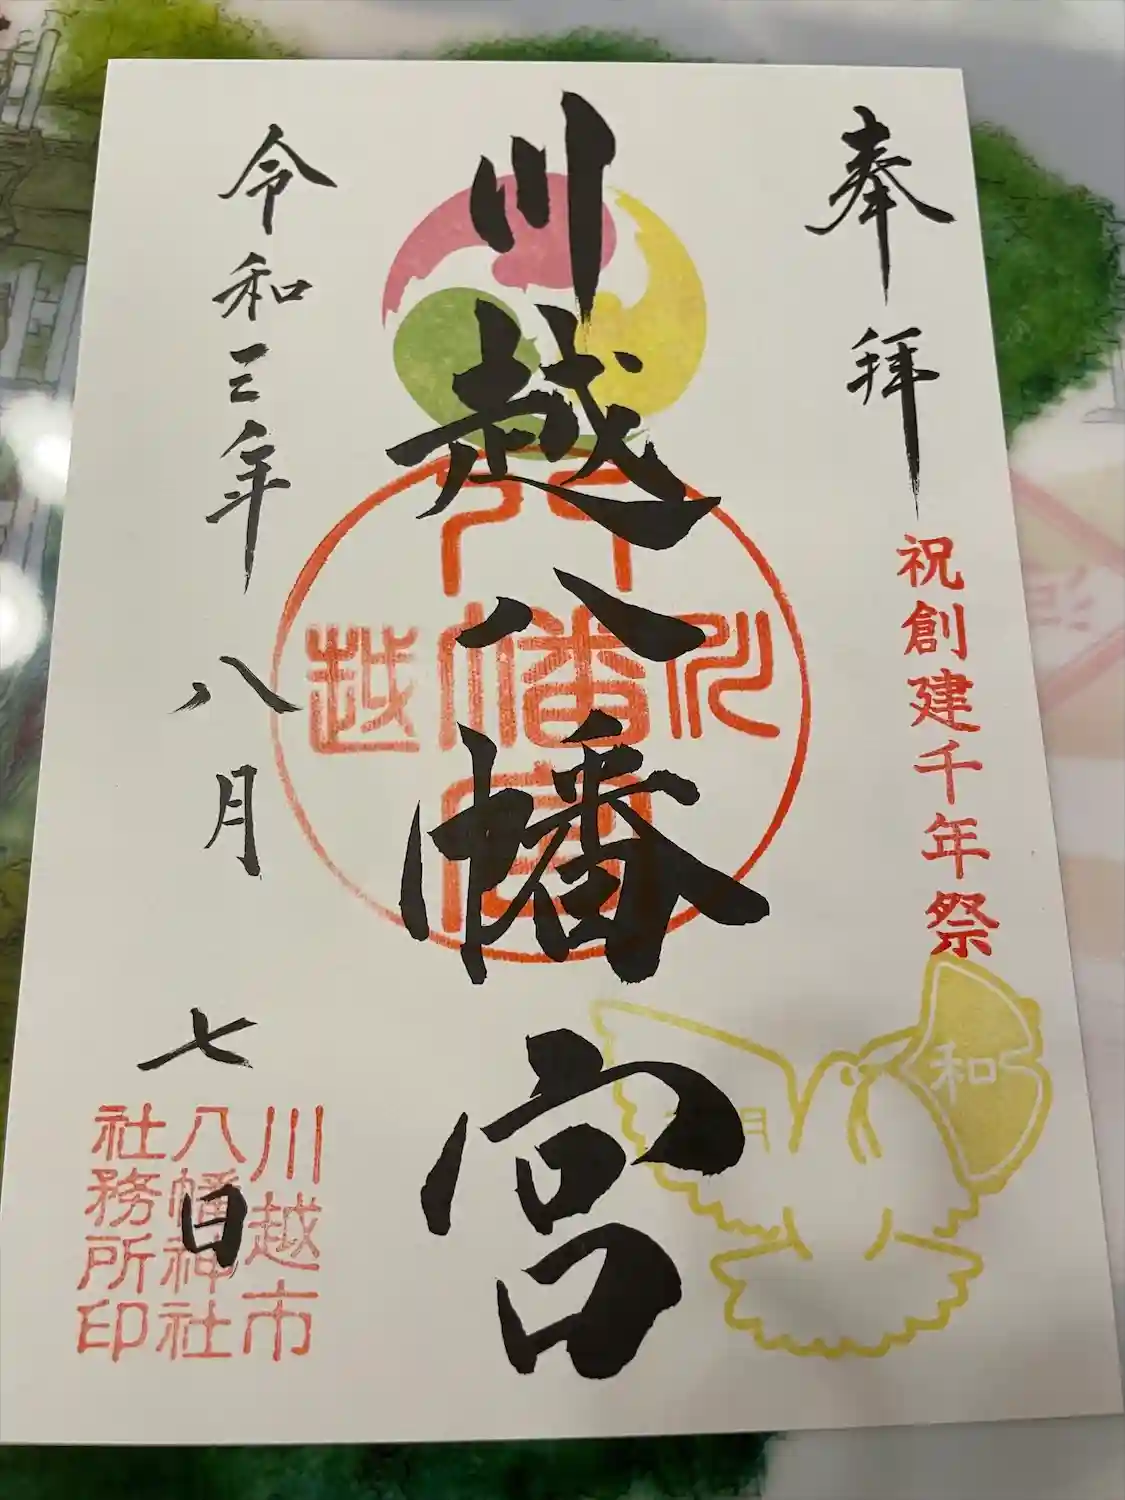 奉拝
祝創建千年祭
川越八幡宮
川越八幡宮
和
月
令和三年八月七日
川越市
八幡神社
社務所印